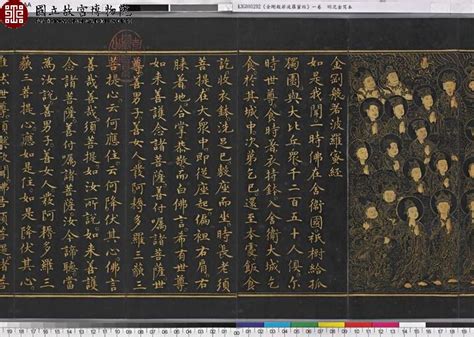 國立故宮博物院
《金剛般若波羅蜜經》一卷
金剛般若波羅蜜經
如是我聞一時佛在舍衛國祇樹給孤
獨園與大比丘眾千二百五十人俱爾
時世尊食時著衣持鉢入舍衛大城乞
食於其城中次第乞已還至本處飯食
訖收衣鉢洗足已敷座而坐時長老須
菩提在大眾中即從座起偏袒右肩右
膝著地合掌恭敬而白佛言希有世尊
如來善護念諸菩薩善付囑諸菩薩世
尊善男子善女人發阿耨多羅三藐三
菩提心云何應住云何降伏其心佛言
善哉善哉須菩提如汝所說如來善護
念諸菩薩善付囑諸菩薩汝今諦聽當
為汝說善男子善女人發阿耨多羅三
藐三菩提心應如是住如是降伏其心